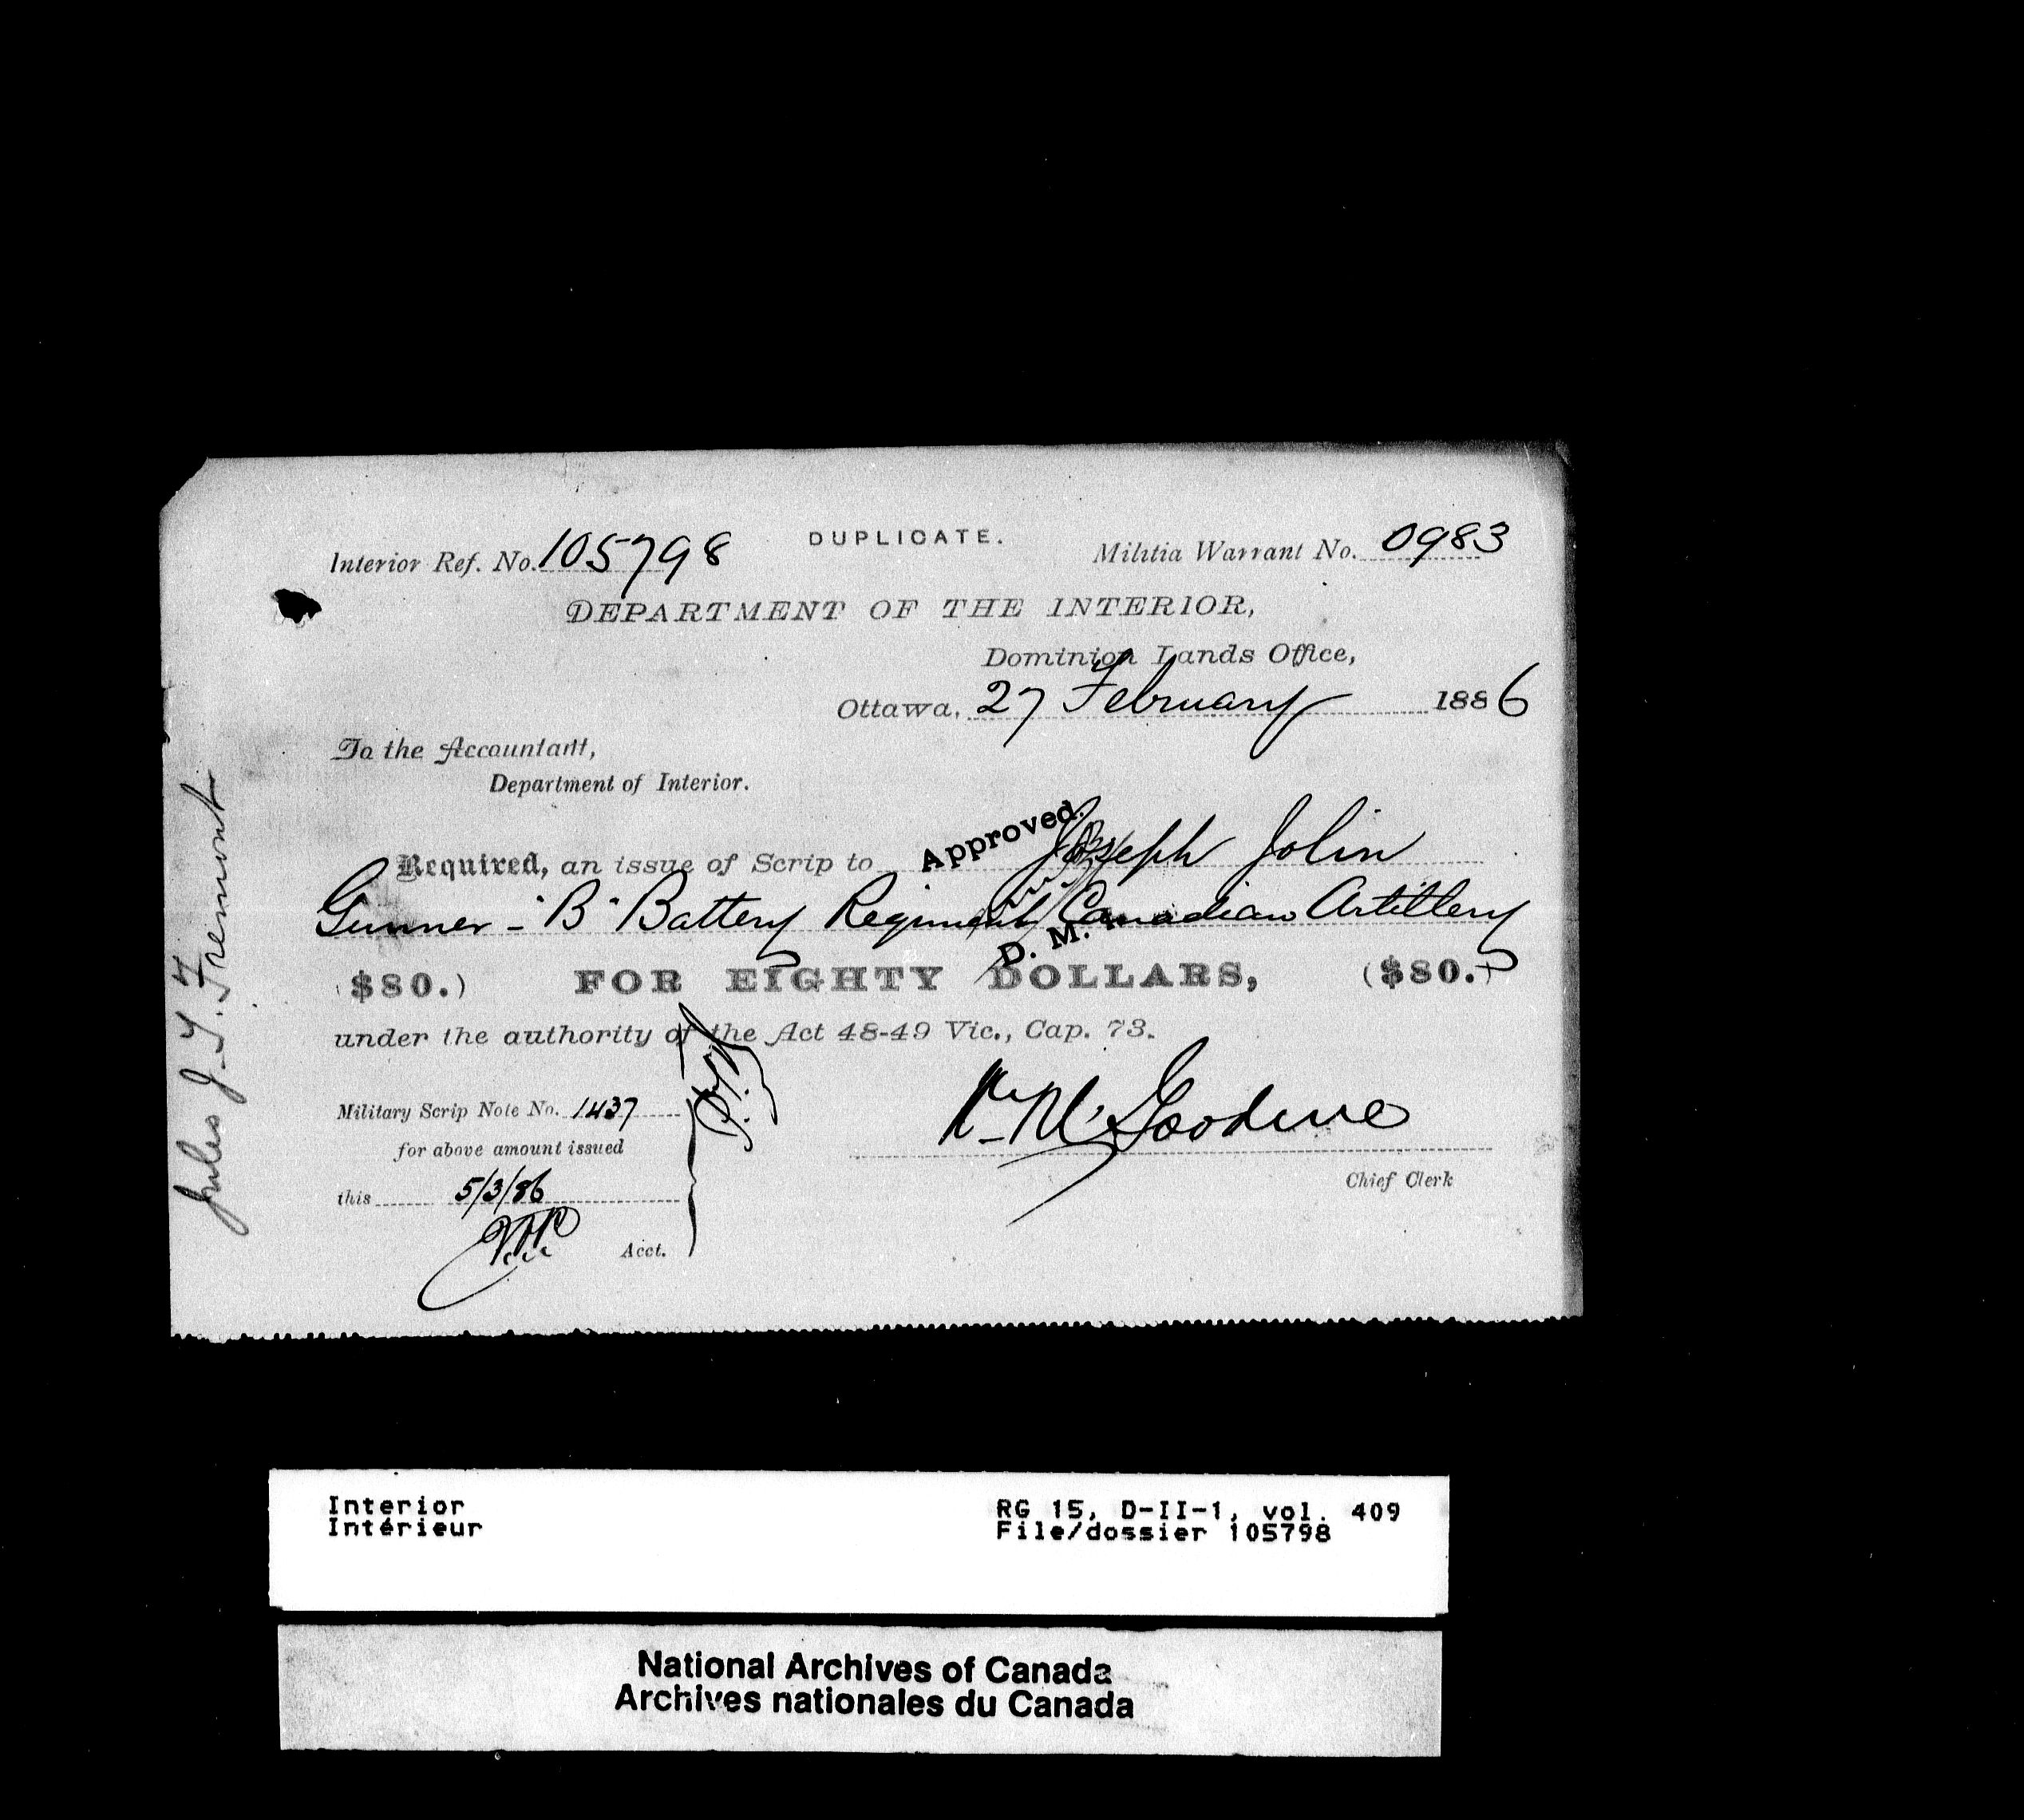 DUPLICATE.
Interior Ref. No. 105798
Militia Warrant No. 0983
DEPARTMENT OF THE INTERIOR,
Dominion Lands Office,
Ottawa, 27 February 1886
To the Accountant,
Department of Interior.
Approved.
Required, an issue of Scrip to Joseph Jolin
Gunner - "B" Battery Regiment Canadian Artillery
D. M.
($80.) FOR EIGHTY DOLLARS, ($80.)
under the authority of the Act 48-49 Vic., Cap. 73.
Military Scrip Note No. 1437
for above amount issued
this 5/3/86
Acct.
Chief Clerk
Jules J. T. Fremont
Interior
Intérieur
RG 15, D-II-1, vol. 409
File/dossier 105798
National Archives of Canada
Archives nationales du Canada